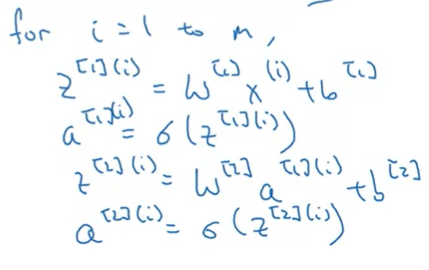 for i = 1 to m,
z^{[1](i)} = W^{[1]} x^{(i)} + b^{[1]}
a^{[1](i)} = σ(z^{[1](i)})
z^{[2](i)} = W^{[2]} a^{[1](i)} + b^{[2]}
a^{[2](i)} = σ(z^{[2](i)})